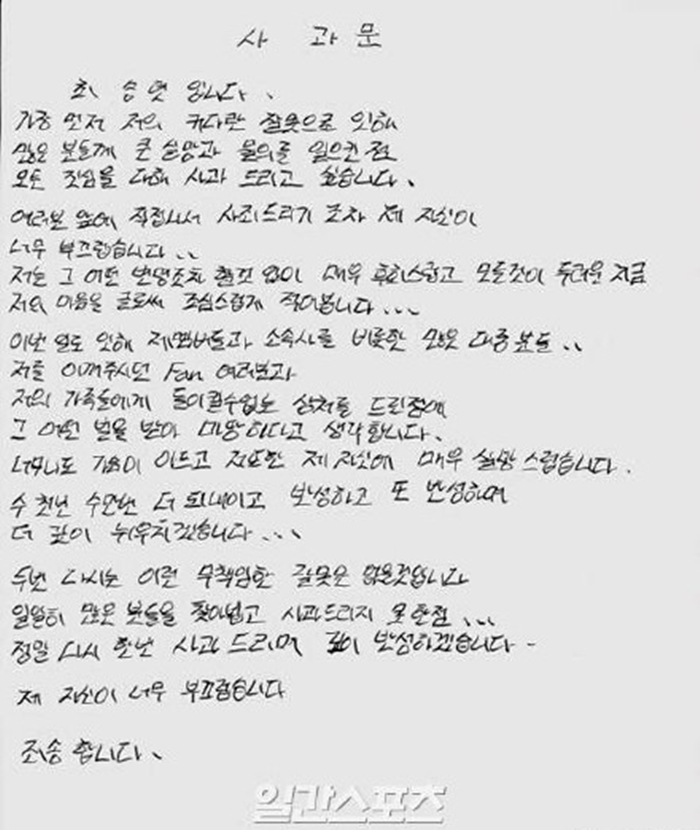 사 과 문
최 승 현 입니다.
가장 먼저 저의 커다란 잘못으로 인해
많은 분들께 큰 실망과 물의를 일으킨 점
모든 진심을 다해 사과 드리고 싶습니다.
여러분 앞에 직접나서 사죄드리기 조차 제 자신이
너무 부끄럽습니다..
저는 그 어떤 변명조차 할것 없이 매우 후회스럽고 모든것이 두려운 지금
저의 마음을 글로써 조심스럽게 적어봅니다...
이번 일로 인해 제멤버들과 소속사를 비롯한 많은 대중분들..
저를 아껴주시던 Fan 여러분과
저의 가족들에게 돌이킬수없는 상처를 드린점에
그 어떤 벌을 받아 마땅하다고 생각합니다.
너무나도 가슴이 아프고 저또한 제 자신에 매우 실망 스럽습니다.
수 천번 수만번 더 되내이고 반성하고 또 반성하며
더 깊이 뉘우치겠습니다...
두번 다시는 이런 무책임한 잘못은 없을것입니다
일일히 많은 분들을 찾아뵙고 사과드리지 못한점...
정말 다시 한번 사과 드리며 깊이 반성하겠습니다-
제 자신이 너무 부끄럽습니다
죄송 합니다.
일간스포츠